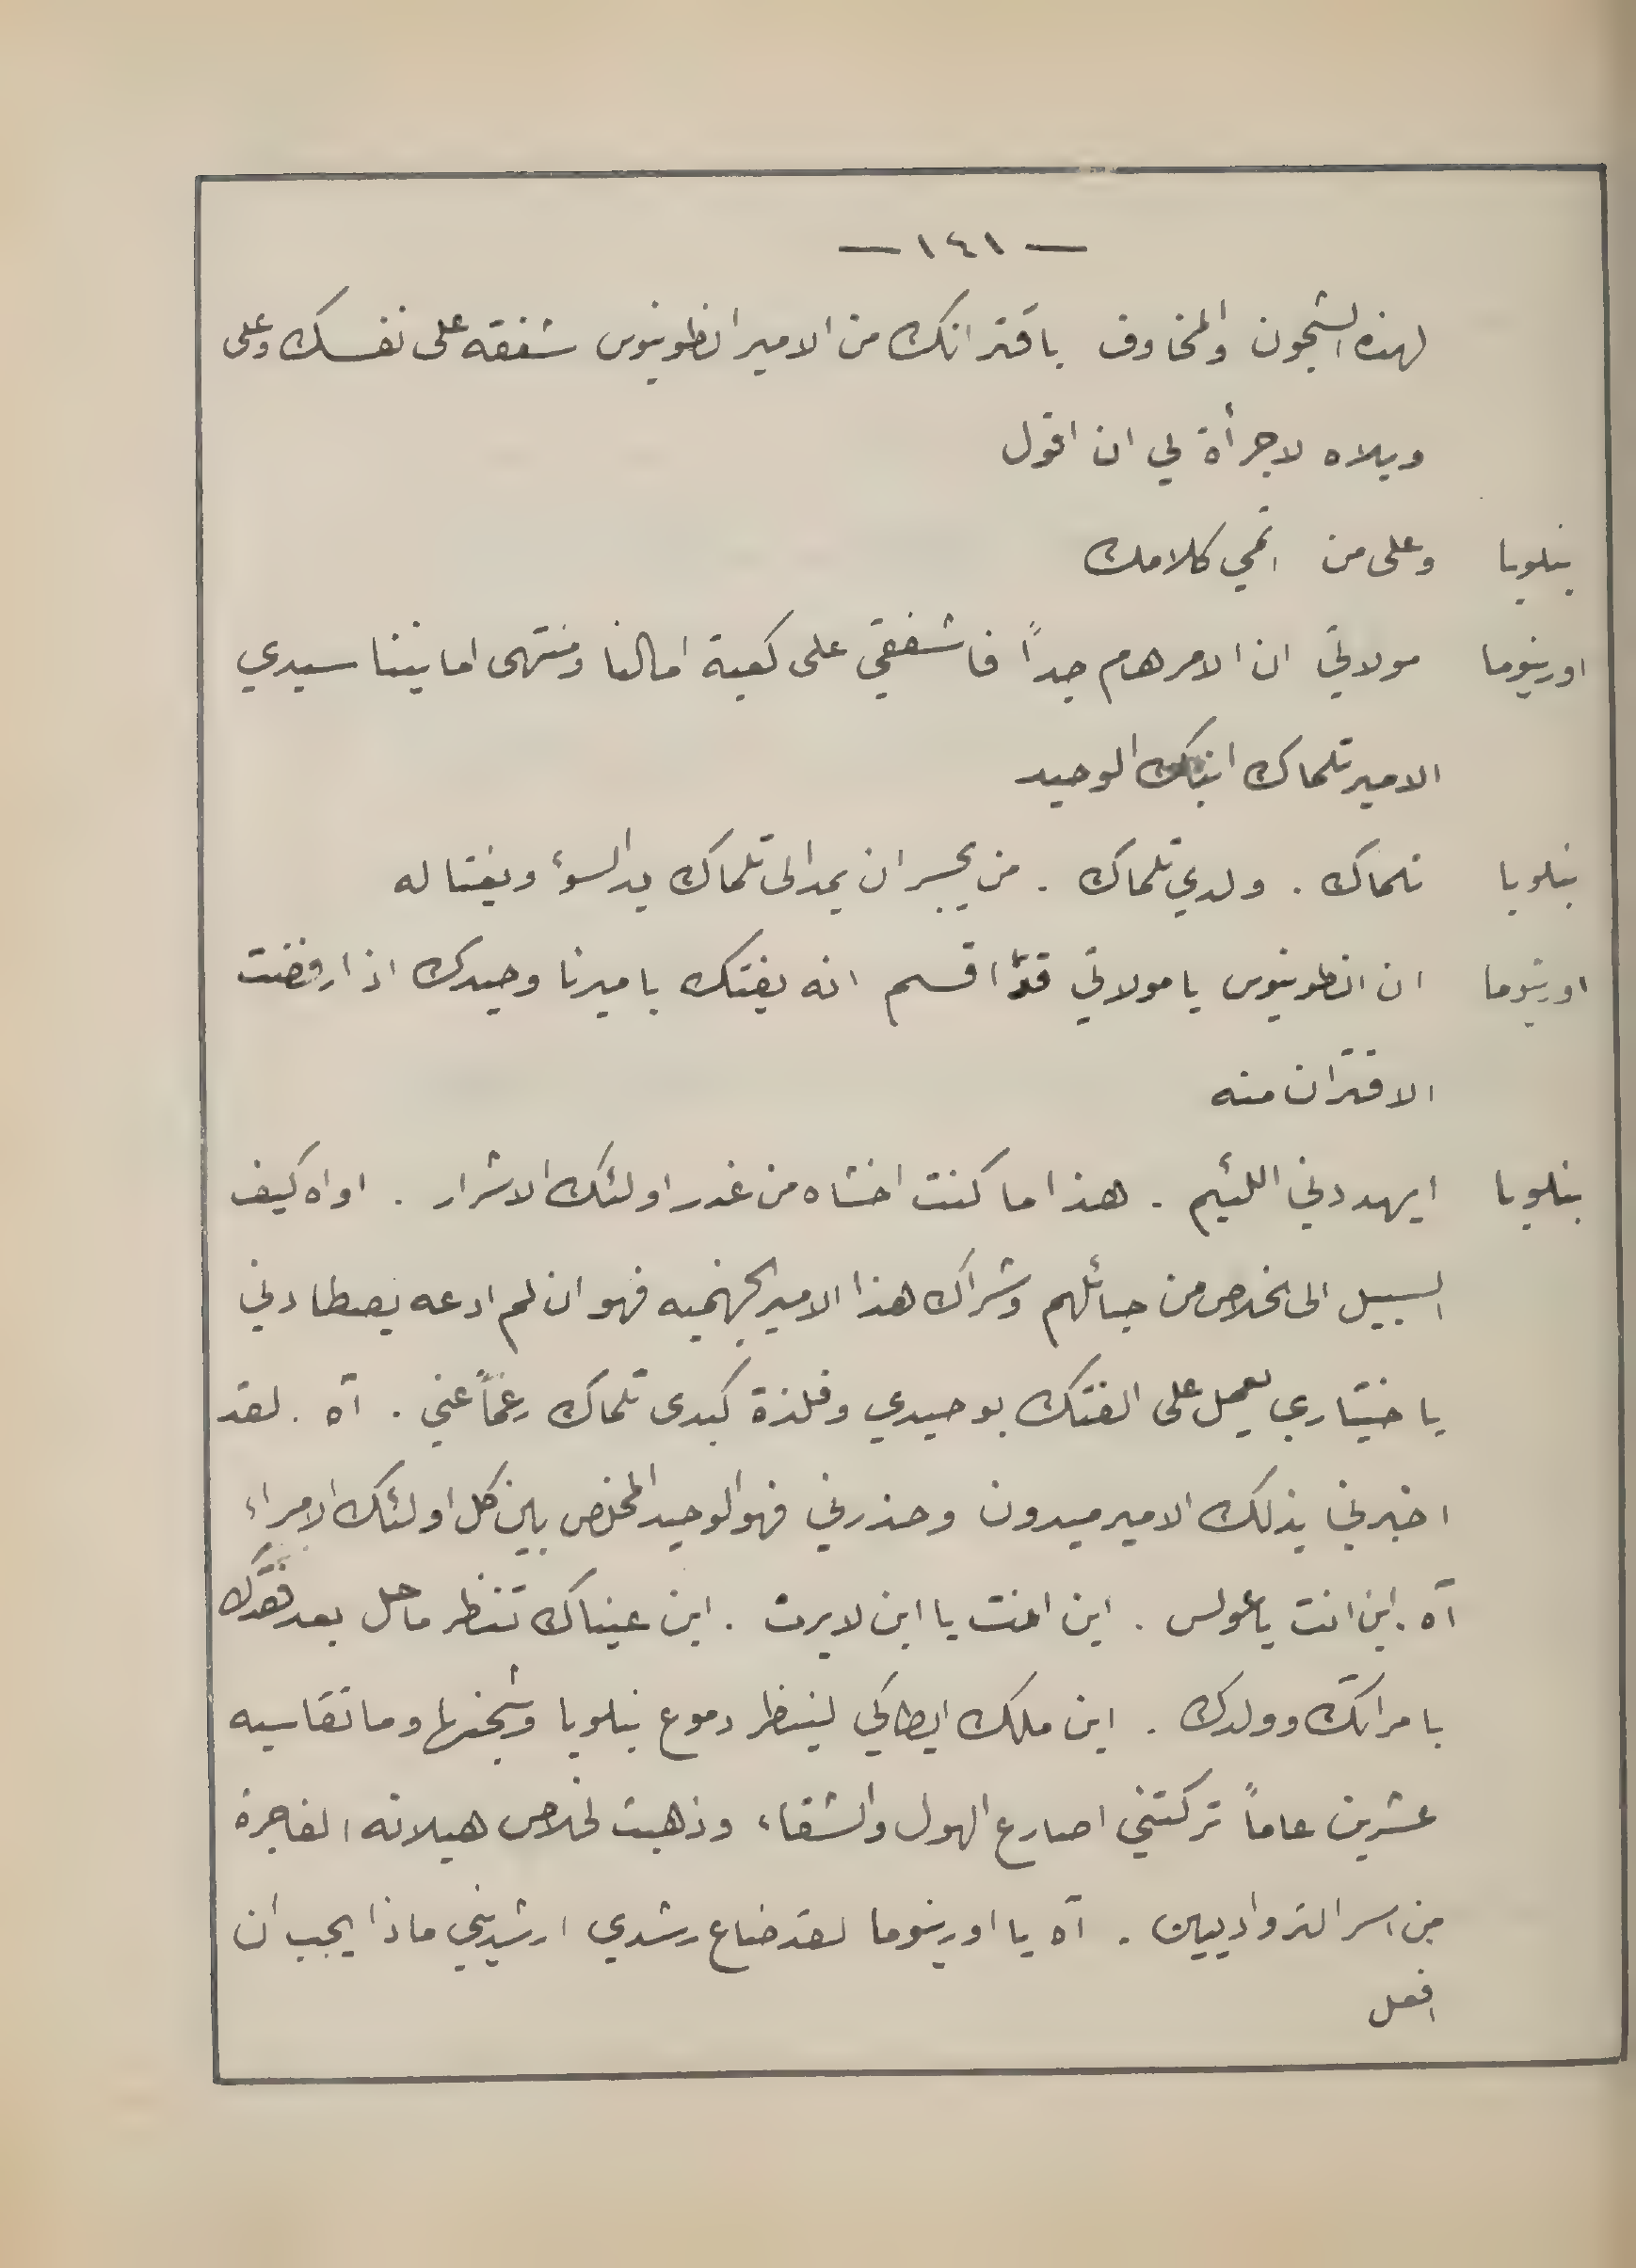 — ١٤١ —
لهذه الشجون والمخاوف باقترانك من الامير انطونيوس شفقه على نفسك وعلى
ويلاه لا جرأة لي ان اقول
بنلوبا وعلى من اتمي كلامك
اورينوما مولاتي ان الامر هام جداً فاشفقي على كعبة امالنا ومنتهى امانينا سيدي
الامير تلماك ابنك الوحيد
بنلوبا تلماك . ولدي تلماك . من يجسر ان يمد الى تلماك يد السوء ويغتاله
اورينوما ان انطونيوس يا مولاتي قد اقسم انه يفتك باميرنا وحيدك اذا رفضت
الاقتران منه
بنلوبا ايهددني اللئيم . هذا ما كنت اخشاه من غدر اولئك الاشرار . اواه كيف
السبيل الى الخلاص من حبائلهم وشراك هذا الامير الجهنميه فهو ان لم ادعه يصطادني
باختياري يعمل على الفتك بوحيدي وفلذة كبدى تلماك رغماً عني . آه . لقد
اخبرني بذلك الامير ميدون وحذرني فهو الوحيد المخلص بين كل اولئك الامراء
آه . اين انت يا عولس . اين انت يا ابن لايرت . اين عيناك تنظر ما حل بعد فقدك
بامراتك وولدك . اين ملك ايطاكي لينظر دموع بنلوبا وشجنها وما تقاسيه
عشرين عاماً تركتني اصارع الهول والشقاء وذهبت لخلاص هيلانه الفاجرة
من اسر التروادييين . آه يا اورينوما لقد ضاع رشدي ارشديني ماذا يجب ان
افعل